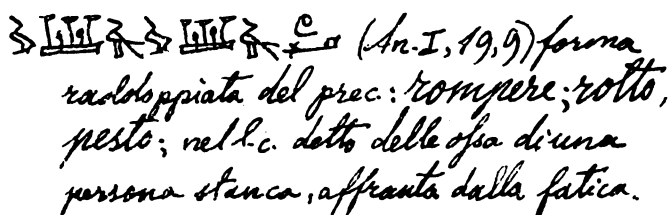 (An. I, 19, 9) forma
raddoppiata del prec.: rompere; rotto,
pesto; nel l. c. detto delle ossa di una
persona stanca, affranta dalla fatica.